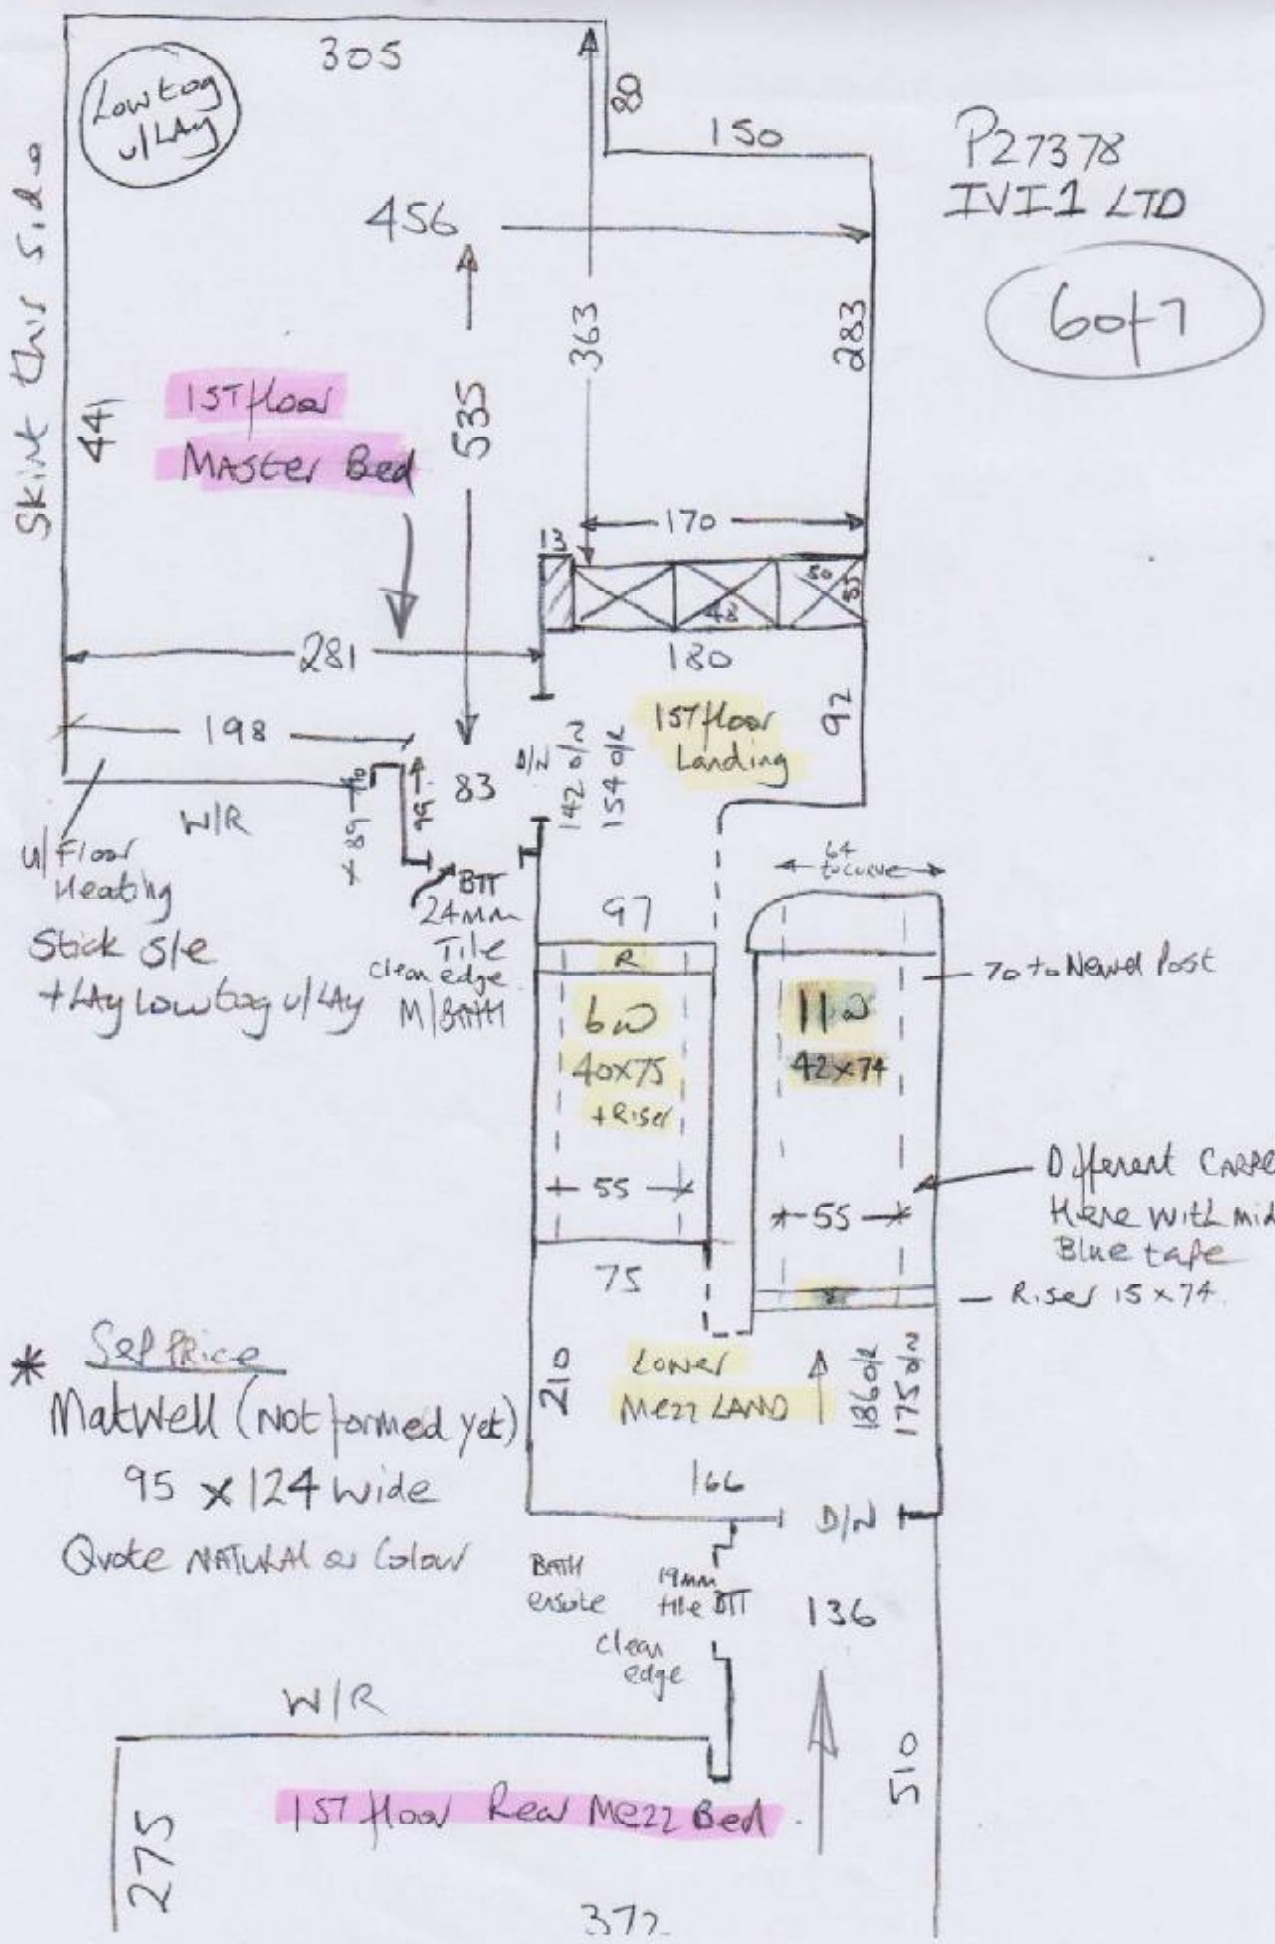 305
Low tog
u/LAy
80
150
P27378
IVI1 LTD
6of7
Skint this side
456
363
283
441
535
1ST floor
MASter Bed
170
13
50
55
48
281
180
1ST floor
Landing
92
198
D/N
142 o/N
154 o/R
83
99
89
W/R
u/Floor
Heating
Stick s/e
+ LAy Low tog u/LAy
BTT
24mm
Tile
clean edge
M/BATH
97
R
6W
40x75
+ Riser
55
75
64
to curve
70 to Newel Post
11W
42x74
55
Different CARPE
Here with mid
Blue tape
Riser 15 x 74
* Sep Price
Matwell (Not formed yet)
95 x 124 wide
Quote NATURAL or Colour
210
Lower
Mezz LAND
186 o/R
175 o/N
166
D/N
BATH
ensuite
19mm
tile BTT
clean
edge
136
W/R
510
1ST floor Rear Mezz Bed
275